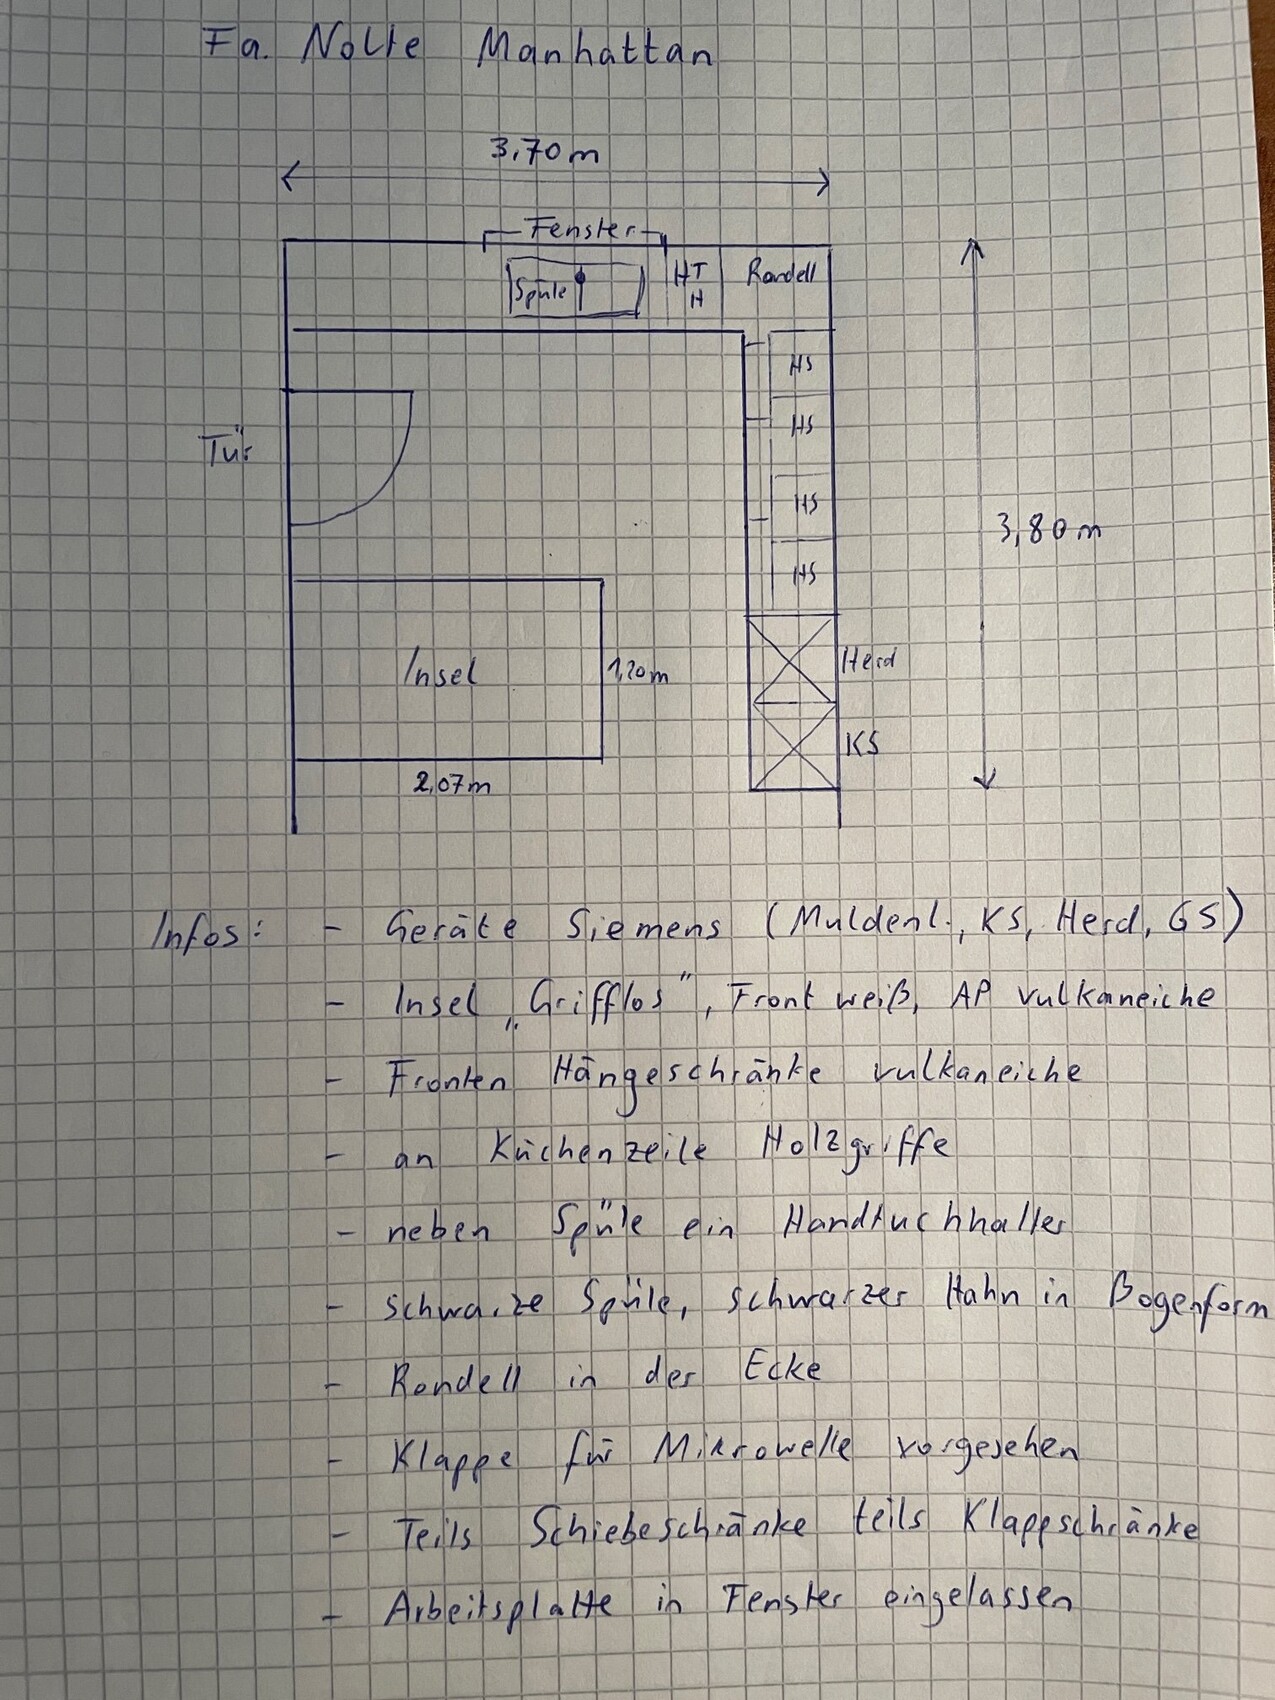 Fa. Nolte Manhattan
3,70m
Fenster
Spüle
HT
H
Rondell
HS
HS
Tür
HS
3,80m
HS
Insel
1,20m
Herd
KS
2,07m
Infos: - Geräte Siemens (Muldenl., KS, Herd, GS)
- Insel „Grifflos", Front weiß, AP vulkaneiche
- Fronten Hängeschränke vulkaneiche
- an Küchenzeile Holzgriffe
- neben Spüle ein Handtuchhalter
- schwarze Spüle, schwarzer Hahn in Bogenform
- Rondell in der Ecke
- Klappe für Mikrowelle vorgesehen
- Teils Schiebeschränke teils Klappschränke
- Arbeitsplatte in Fenster eingelassen